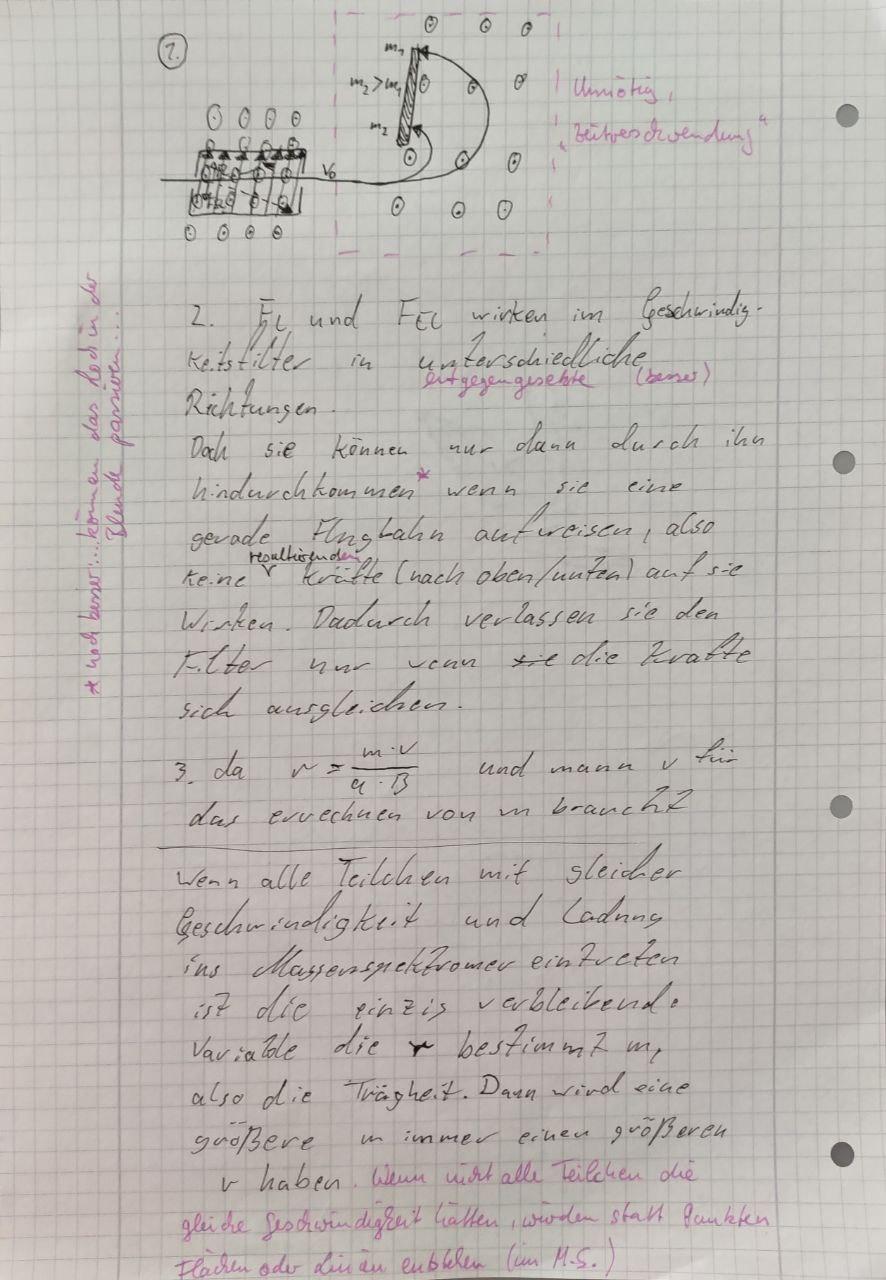 1.
m₁
m₂ > m₁
m₂
v₀
Unnötig,
"Zeitverschwendung"
2. FL und FEL wirken im Geschwindig-
keitsfilter in unterschiedliche
entgegengesetzte (besser)
Richtungen.
Doch sie können nur dann durch ihn
hindurchkommen* wenn sie eine
gerade Flugbahn aufweisen, also
resultierenden
keine Kräfte (nach oben/unten) auf sie
wirken. Dadurch verlassen sie den
Filter nur wenn sie die Kräfte
sich ausgleichen.
* noch besser: ...können das Loch in der
Blende passieren...
3. da r = m·v / q·B und mann v für
das errechnen von m braucht
Wenn alle Teilchen mit gleicher
Geschwindigkeit und Ladung
ins Massenspektromer eintreten
ist die einzig verbleibende
Variable die r bestimmt m,
also die Trägheit. Dann wird eine
größere m immer einen größeren
r haben. Wenn nicht alle Teilchen die
gleiche Geschwindigkeit hätten, würden statt Punkten
Flächen oder Linien entstehen (im M.S.)